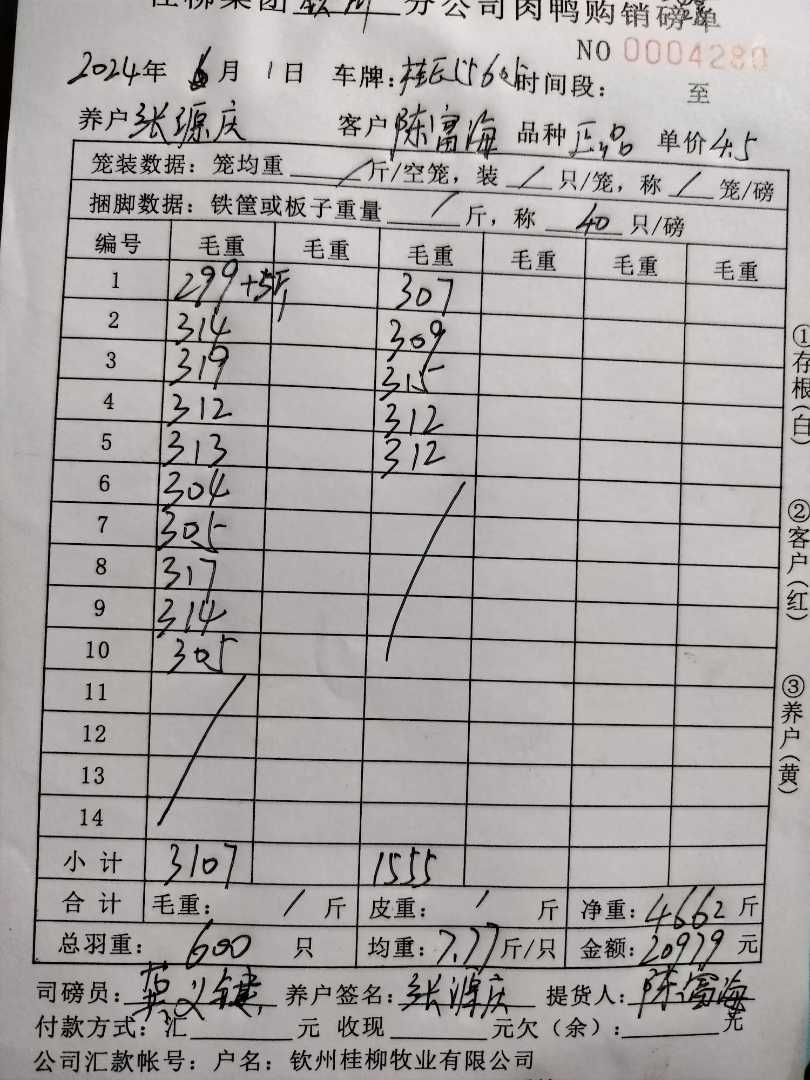 桂柳集团 钦州 分公司肉鸭购销磅单
NO 0004280
2024年 6月 1日 车牌: 时间段: 至
养户 张源庆 客户 陈富海 品种 正品 单价 4.5
笼装数据: 笼均重 / 斤/空笼, 装 / 只/笼, 称 / 笼/磅
捆脚数据: 铁筐或板子重量 / 斤, 称 40 只/磅
编号 毛重 毛重 毛重 毛重 毛重 毛重
1 299+5斤 307
2 314 309
3 319 315
4 312 312
5 313 312
6 304
7 305
8 317
9 314
10 305
11
12
13
14
小计 3107 1555
合计 毛重: / 斤 皮重: / 斤 净重: 4662 斤
总羽重: 600 只 均重: 7.77 斤/只 金额: 20979 元
司磅员: 养户签名: 张源庆 提货人: 陈富海
付款方式: 汇 元 收现 元欠(余): 元
公司汇款帐号: 户名: 钦州桂柳牧业有限公司
①存根(白) ②客户(红) ③养户(黄)